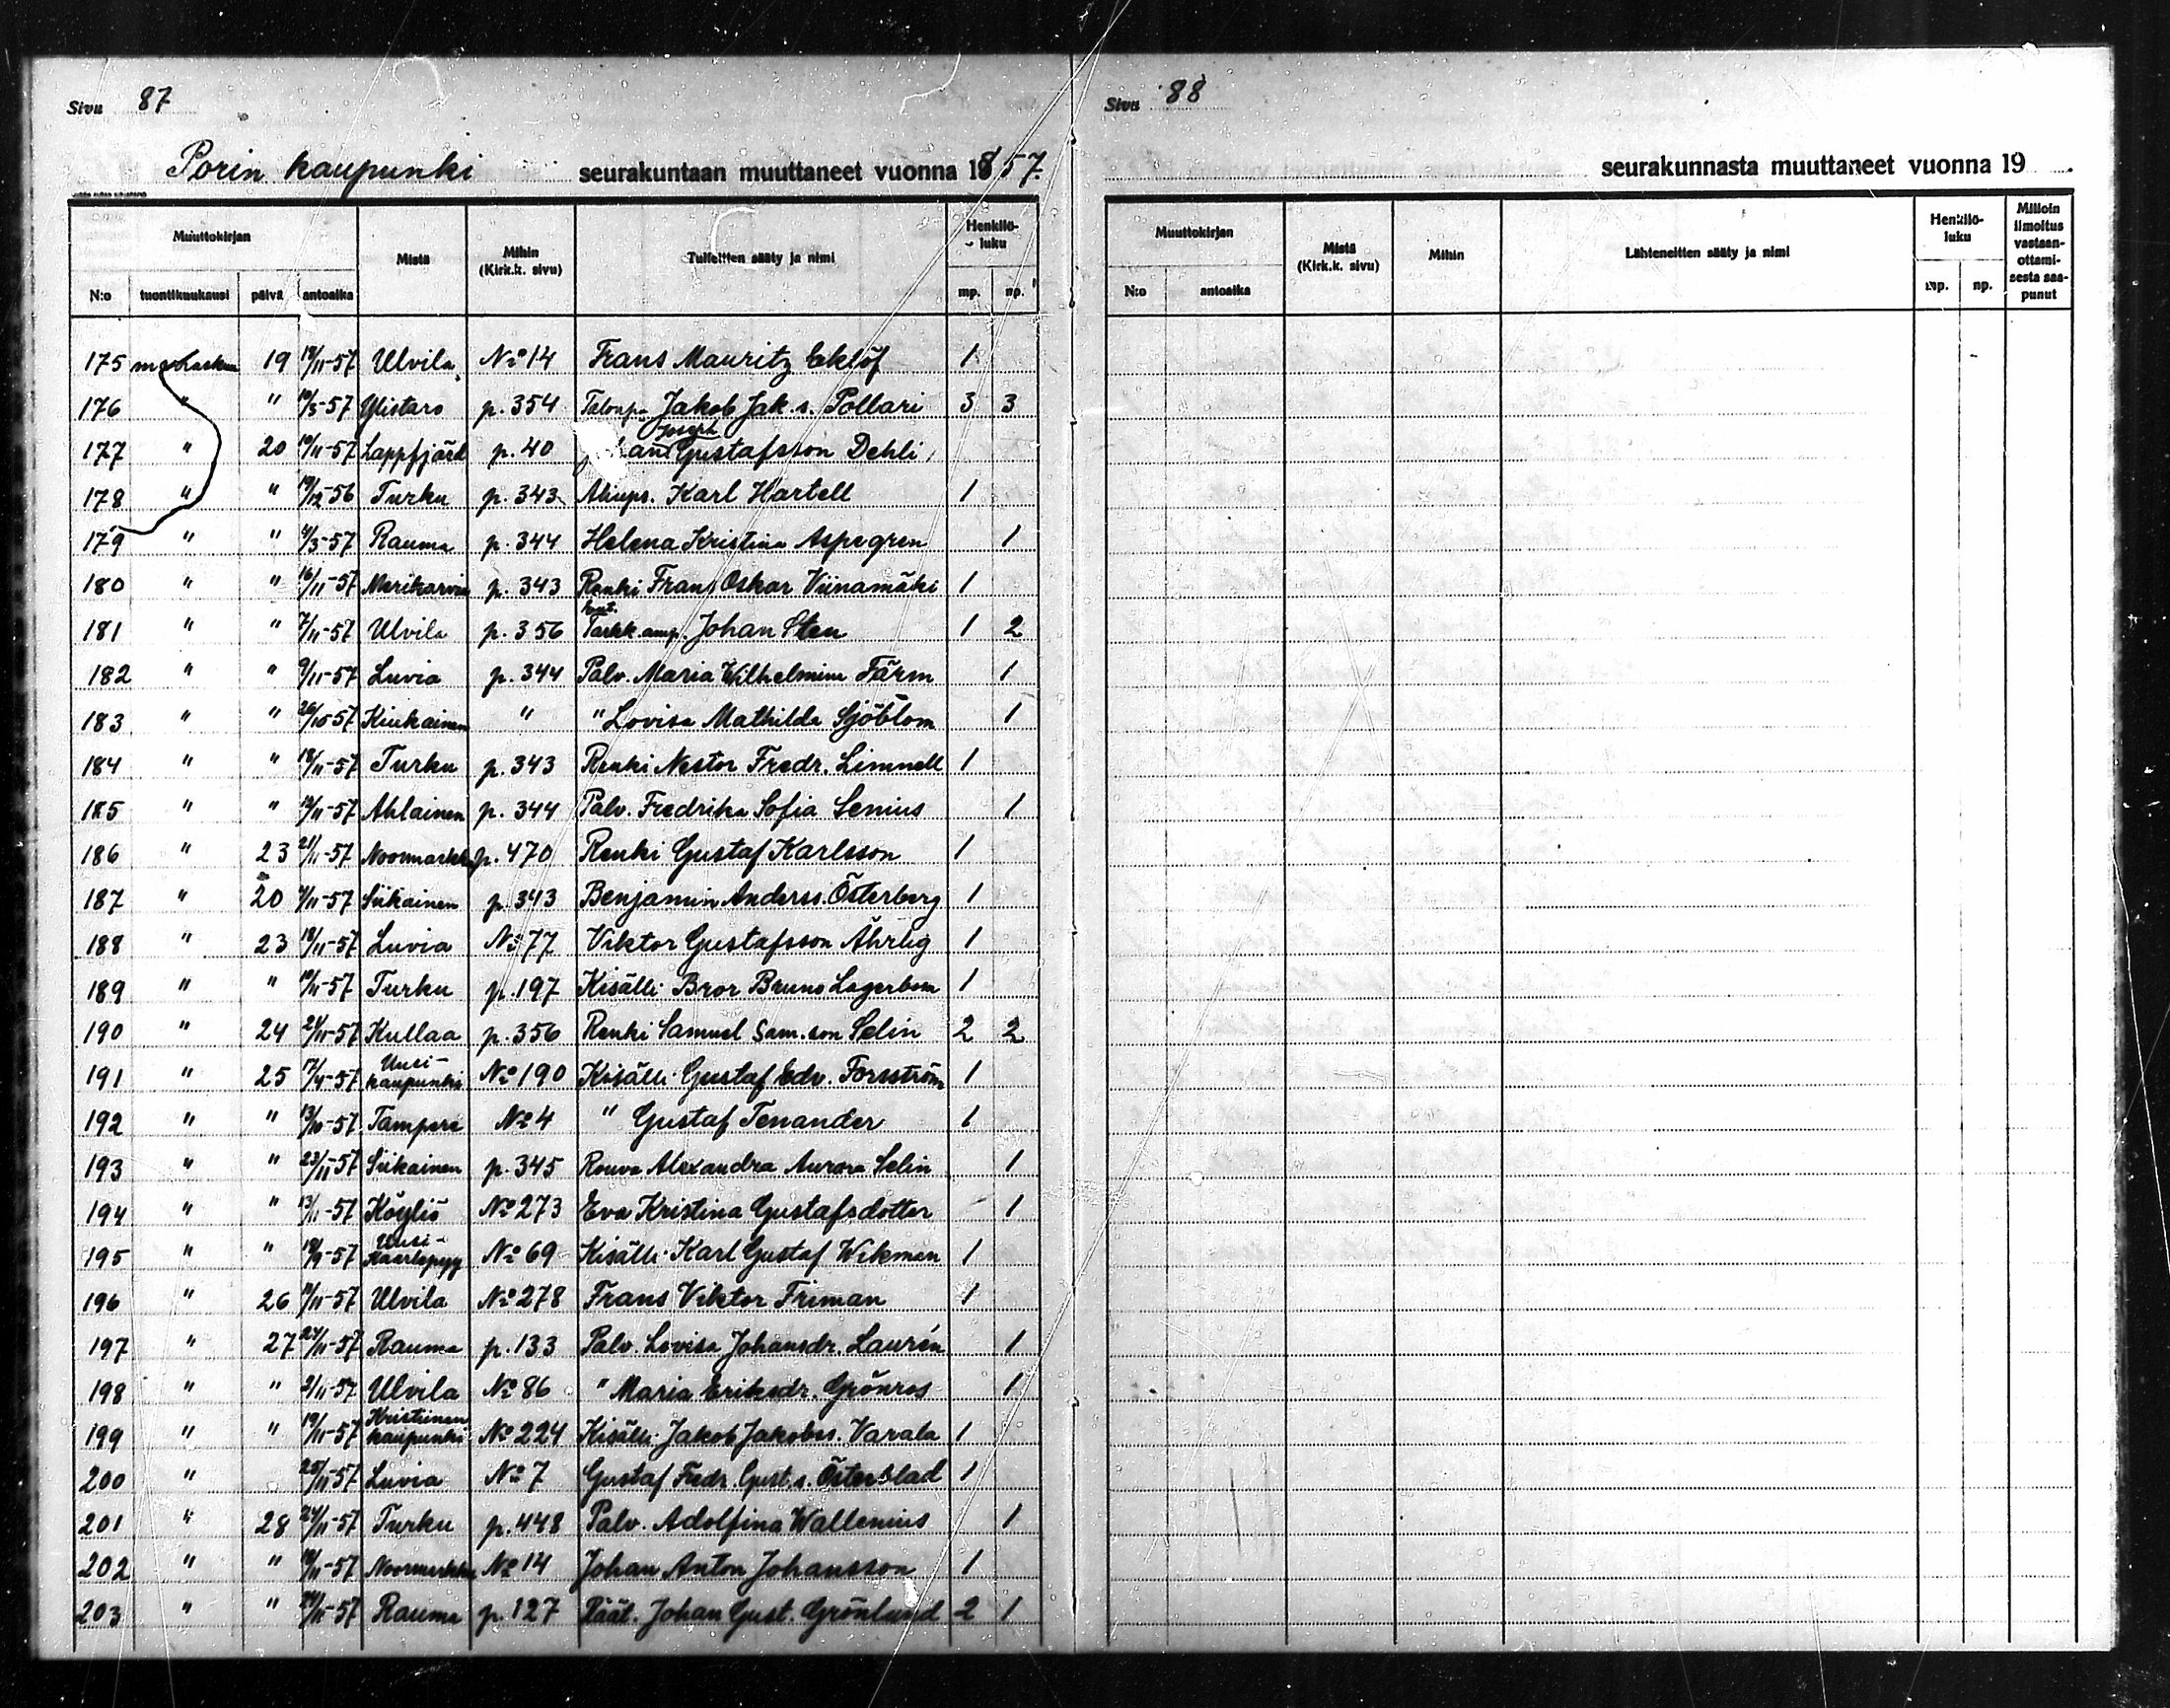 Sivu 87
Porin kaupunki seurakuntaan muuttaneet vuonna 1857.
Muuttokirjan Mistä Mihin (Kirk.k. sivu) Tulleitten sääty ja nimi Henkilöluku
N:o tuontikuukausi päivä antoaika mp. np.
175 marraskuu 19 19/11-57 Ulvila No 14 Frans Mauritz Eklöf 1
176 " " 10/3-57 Ylistaro p. 354 Talonp. Jakob Jak. s. Pollari 3 3
177 " 20 10/11-57 Lappfjärd p. 40 Joseph Gustafsson Dehli
178 " " 19/12-56 Turku p. 343 Karl Hartell 1
179 " " 4/3-57 Rauma p. 344 Helena Kristina Aspegren 1
180 " " 16/11-57 Merikarvia p. 343 Renki Frans Oskar Viinamäki 1
181 " " 7/11-57 Ulvila p. 356 Tarkk.amp. Johan Sten 1 2
182 " " 9/11-57 Luvia p. 344 Palv. Maria Wilhelmina Färm 1
183 " " 26/10-57 Kiukainen " " Lovisa Mathilda Sjöblom 1
184 " " 18/11-57 Turku p. 343 Renki Nestor Fredr. Limnell 1
185 " " 12/11-57 Ahlainen p. 344 Palv. Fredrika Sofia Senius 1
186 " 23 21/11-57 Noormarkku p. 470 Renki Gustaf Karlsson 1
187 " 20 /11-57 Siikainen p. 343 Benjamin Anderss. Österberg 1
188 " 23 18/11-57 Luvia No 77 Viktor Gustafsson Åhrlig 1
189 " " 10/11-57 Turku p. 197 Kisälli Bror Bruno Lagerbom 1
190 " 24 21/11-57 Kullaa p. 356 Renki Samuel Sam.son Selin 2 2
191 " 25 17/4-57 Uusikaupunki No 190 Kisälli Gustaf Edv. Forsström 1
192 " " 13/10-57 Tampere No 4 " Gustaf Tenander 1
193 " " 23/11-57 Siikainen p. 345 Rouva Alexandra Aurora Selin 1
194 " " 13/11-57 Köyliö No 273 Eva Kristina Gustafsdotter 1
195 " " 19/9-57 Uusi-Kaarlepyy No 69 Kisälli Karl Gustaf Wikman 1
196 " 26 11/11-57 Ulvila No 278 Frans Viktor Friman 1
197 " 27 24/11-57 Rauma p. 133 Palv. Lovisa Johansdr. Laurén 1
198 " " 2/11-57 Ulvila No 86 " Maria Eriksdr. Grönros 1
199 " " 19/11-57 Kristiinankaupunki No 224 Kisälli Jakob Jakobss. Varala 1
200 " 25/11-57 Luvia No 7 Gustaf Fredr. Gust. s. Österblad 1
201 " 28 24/11-57 Turku p. 448 Palv. Adolfina Wallenius 1
202 " " 18/11-57 Noormarkku No 14 Johan Anton Johansson 1
203 " " 24/11-57 Rauma p. 127 Räät. Johan Gust. Grönlund 2 1
Sivu 88
seurakunnasta muuttaneet vuonna 19 .
Muuttokirjan Mistä (Kirk.k. sivu) Mihin Lähteneitten sääty ja nimi Henkilöluku Milloin ilmoitus vastaanottamisesta saapunut
N:o antoaika mp. np.